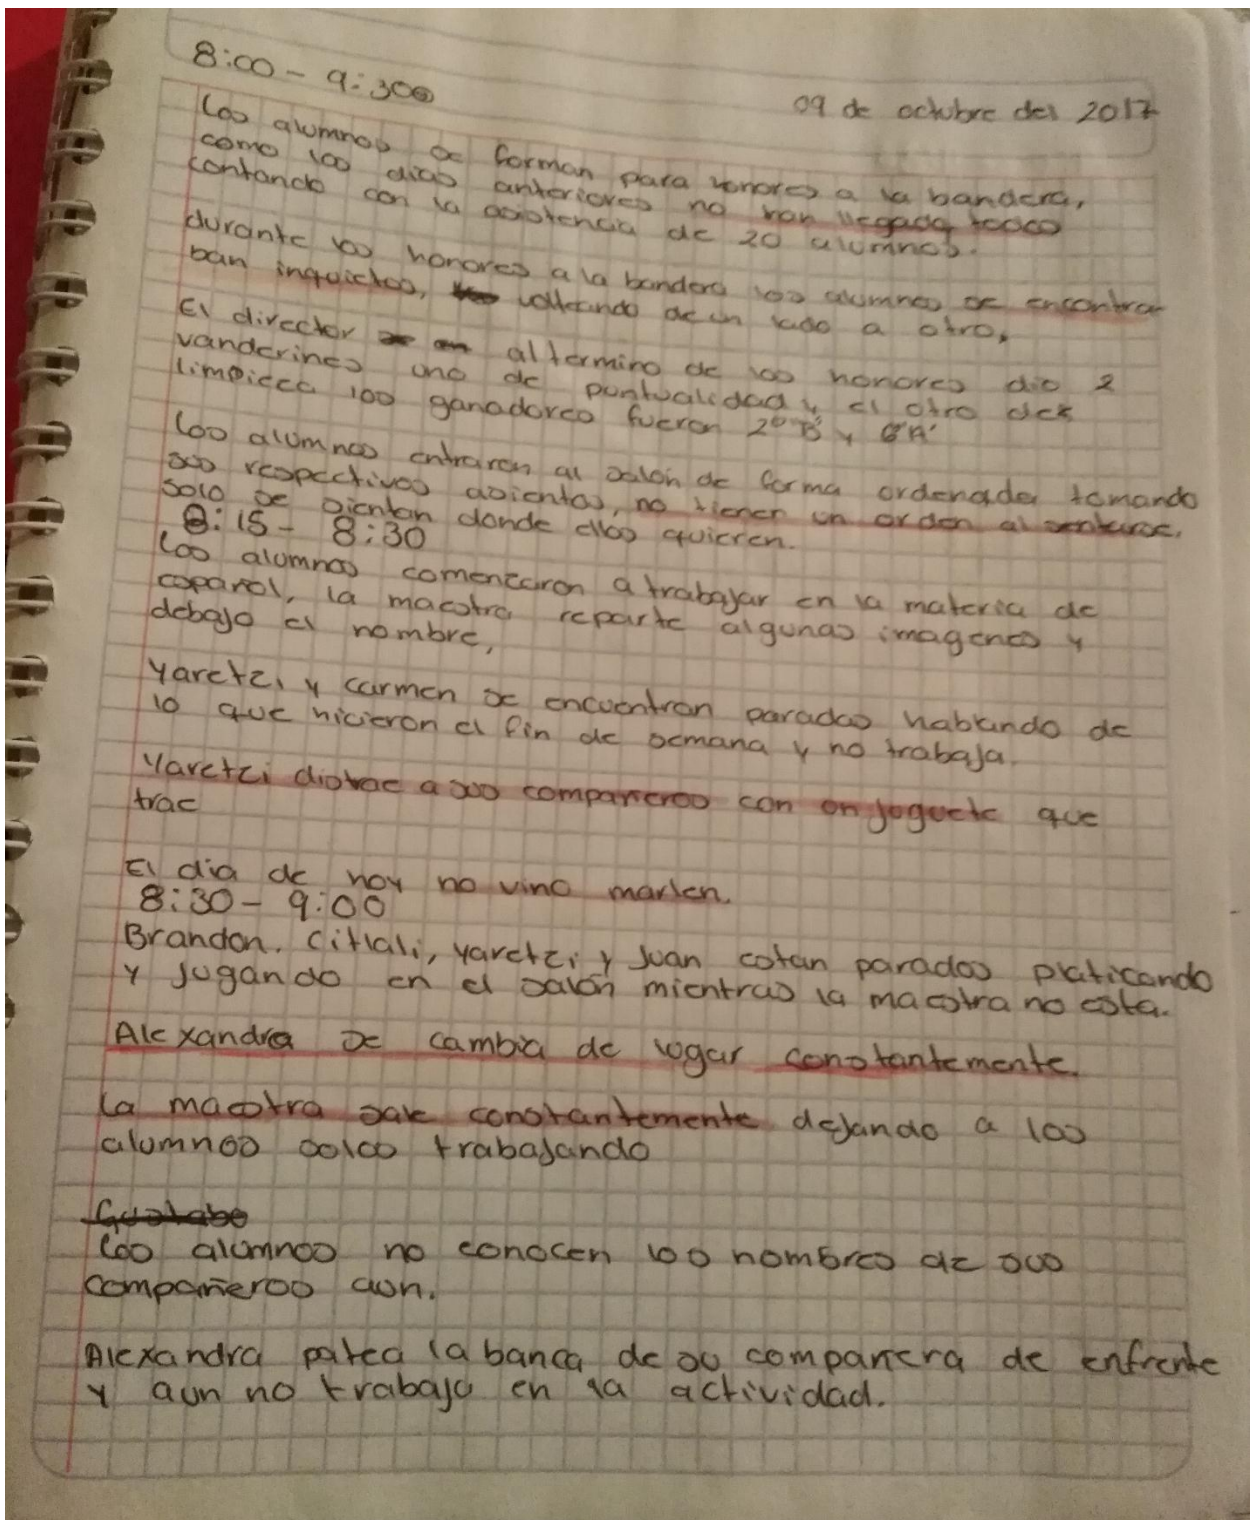 8:00 - 9:30
09 de octubre del 2017
Los alumnos se forman para honores a la bandera,
como los dias anteriores no han llegado todos
contando con la asistencia de 20 alumnos.
durante los honores a la bandera los alumnos se encontra
ban inquietos, volteando de un lado a otro,
El director al termino de los honores dio 2
vanderines uno de puntualidad y el otro de
limpieza los ganadores fueron 2° "B" y 6"A"
Los alumnos entraron al salón de forma ordenada tomando
sus respectivos asientos, no tienen un orden al sentarse,
solo se sientan donde ellos quieren.
8:15 - 8:30
Los alumnos comenzaron a trabajar en la materia de
español, la maestra reparte algunas imagenes y
debajo el nombre,
Yaretzi y carmen se encuentran paradas hablando de
lo que hicieron el fin de semana y no trabaja.
Yaretzi distrae a sus compañeros con un juguete que
trae
El dia de hoy no vino marlen.
8:30 - 9:00
Brandon. Citlali, yaretzi y Juan estan parados platicando
y jugando en el salón mientras la maestra no esta.
Alexandra se cambia de lugar constantemente.
La maestra sale constantemente dejando a los
alumnos solos trabajando
Gustabo
Los alumnos no conocen los nombres de sus
compañeros aun.
Alexandra patea la banca de su compañera de enfrente
y aun no trabaja en la actividad.